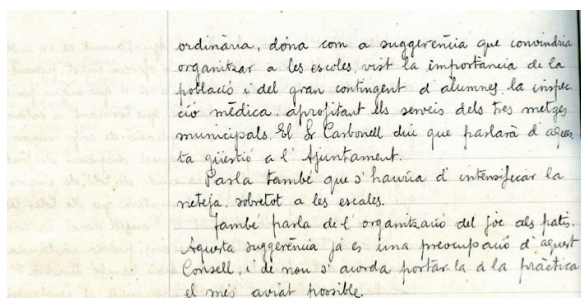 ordinària, dóna com a suggerència que convindria
organitzar a les escoles, vist la importancia de la
població i del gran contingent d'alumnes, la inspec-
ció mèdica, aprofitant els serveis dels tres metges
municipals. El Sr Carbonell diu que parlarà d'aques
ta qüestió a l'Ajuntament.
Parla també que s'hauria d'intensificar la
neteja, sobretot a les escales.
També parla de l'organització del joc als patis.
Aquesta suggerència ja és una preocupació d'aquest
Consell, i de nou s'acorda portar-la a la pràctica
el més aviat possible.